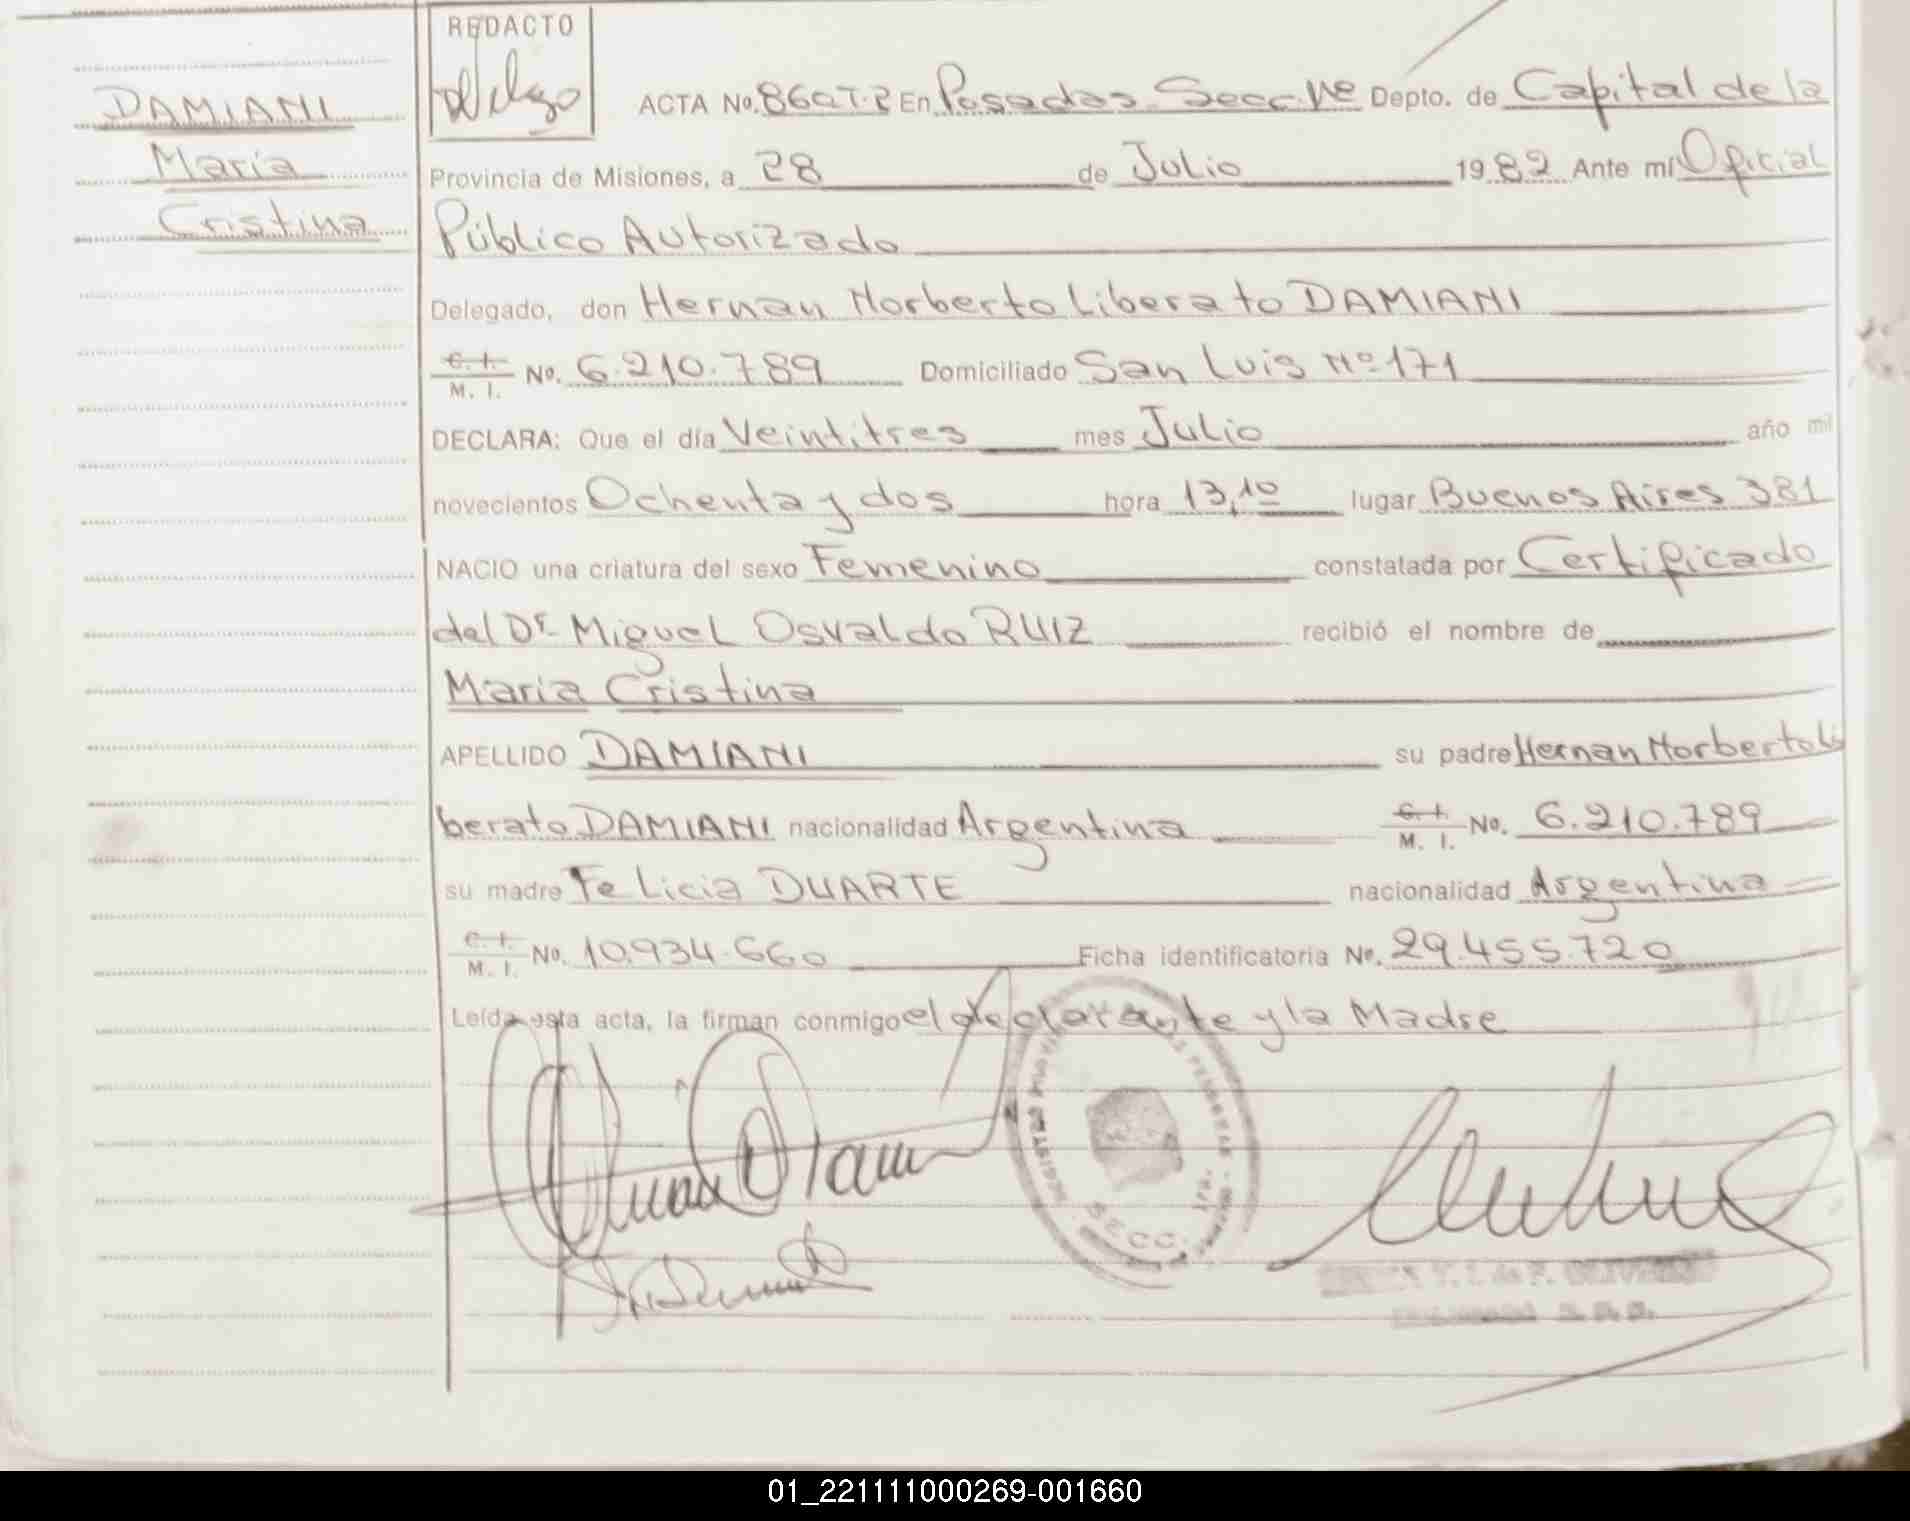 REDACTO
DAMIANI
María
Cristina
ACTA No. 860T.2 En Posadas Secc. 1ra Depto. de Capital de la
Provincia de Misiones, a 28 de Julio 1982 Ante mí Oficial
Público Autorizado
Delegado, don Hernan Norberto Liberato DAMIANI
C. I. M. I. No. 6.210.789 Domiciliado San Luis Nº 171
DECLARA: Que el día Veintitres mes Julio año mil
novecientos Ochenta y dos hora 13,10 lugar Buenos Aires 381
NACIO una criatura del sexo Femenino constatada por Certificado
del Dr Miguel Osvaldo RUIZ recibió el nombre de
Maria Cristina
APELLIDO DAMIANI su padre Hernan Norberto Li
berato DAMIANI nacionalidad Argentina C. I. M. I. No. 6.210.789
su madre Felicia DUARTE nacionalidad Argentina
C. I. M. I. No. 10.934.660 Ficha identificatoria No. 29.455.720
Leída esta acta, la firman conmigo el declarante y la Madre
SECC.
01_221111000269-001660